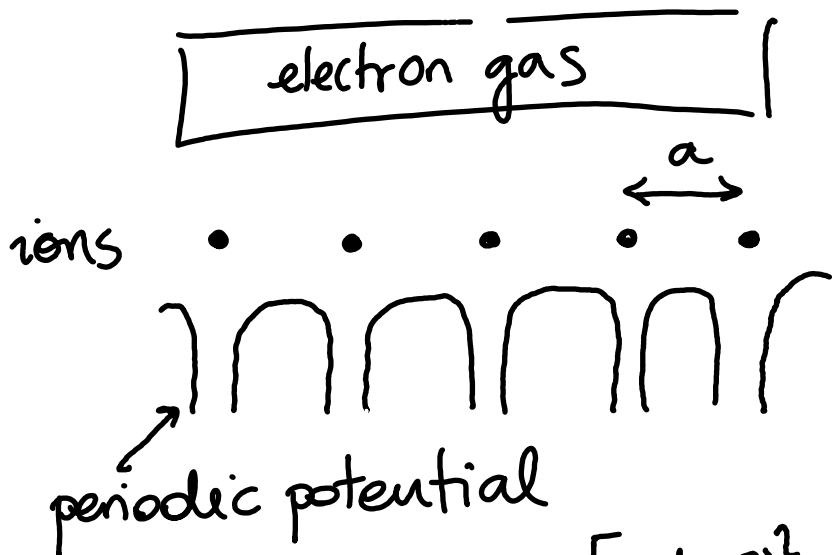 electron gas
a
ions
periodic potential